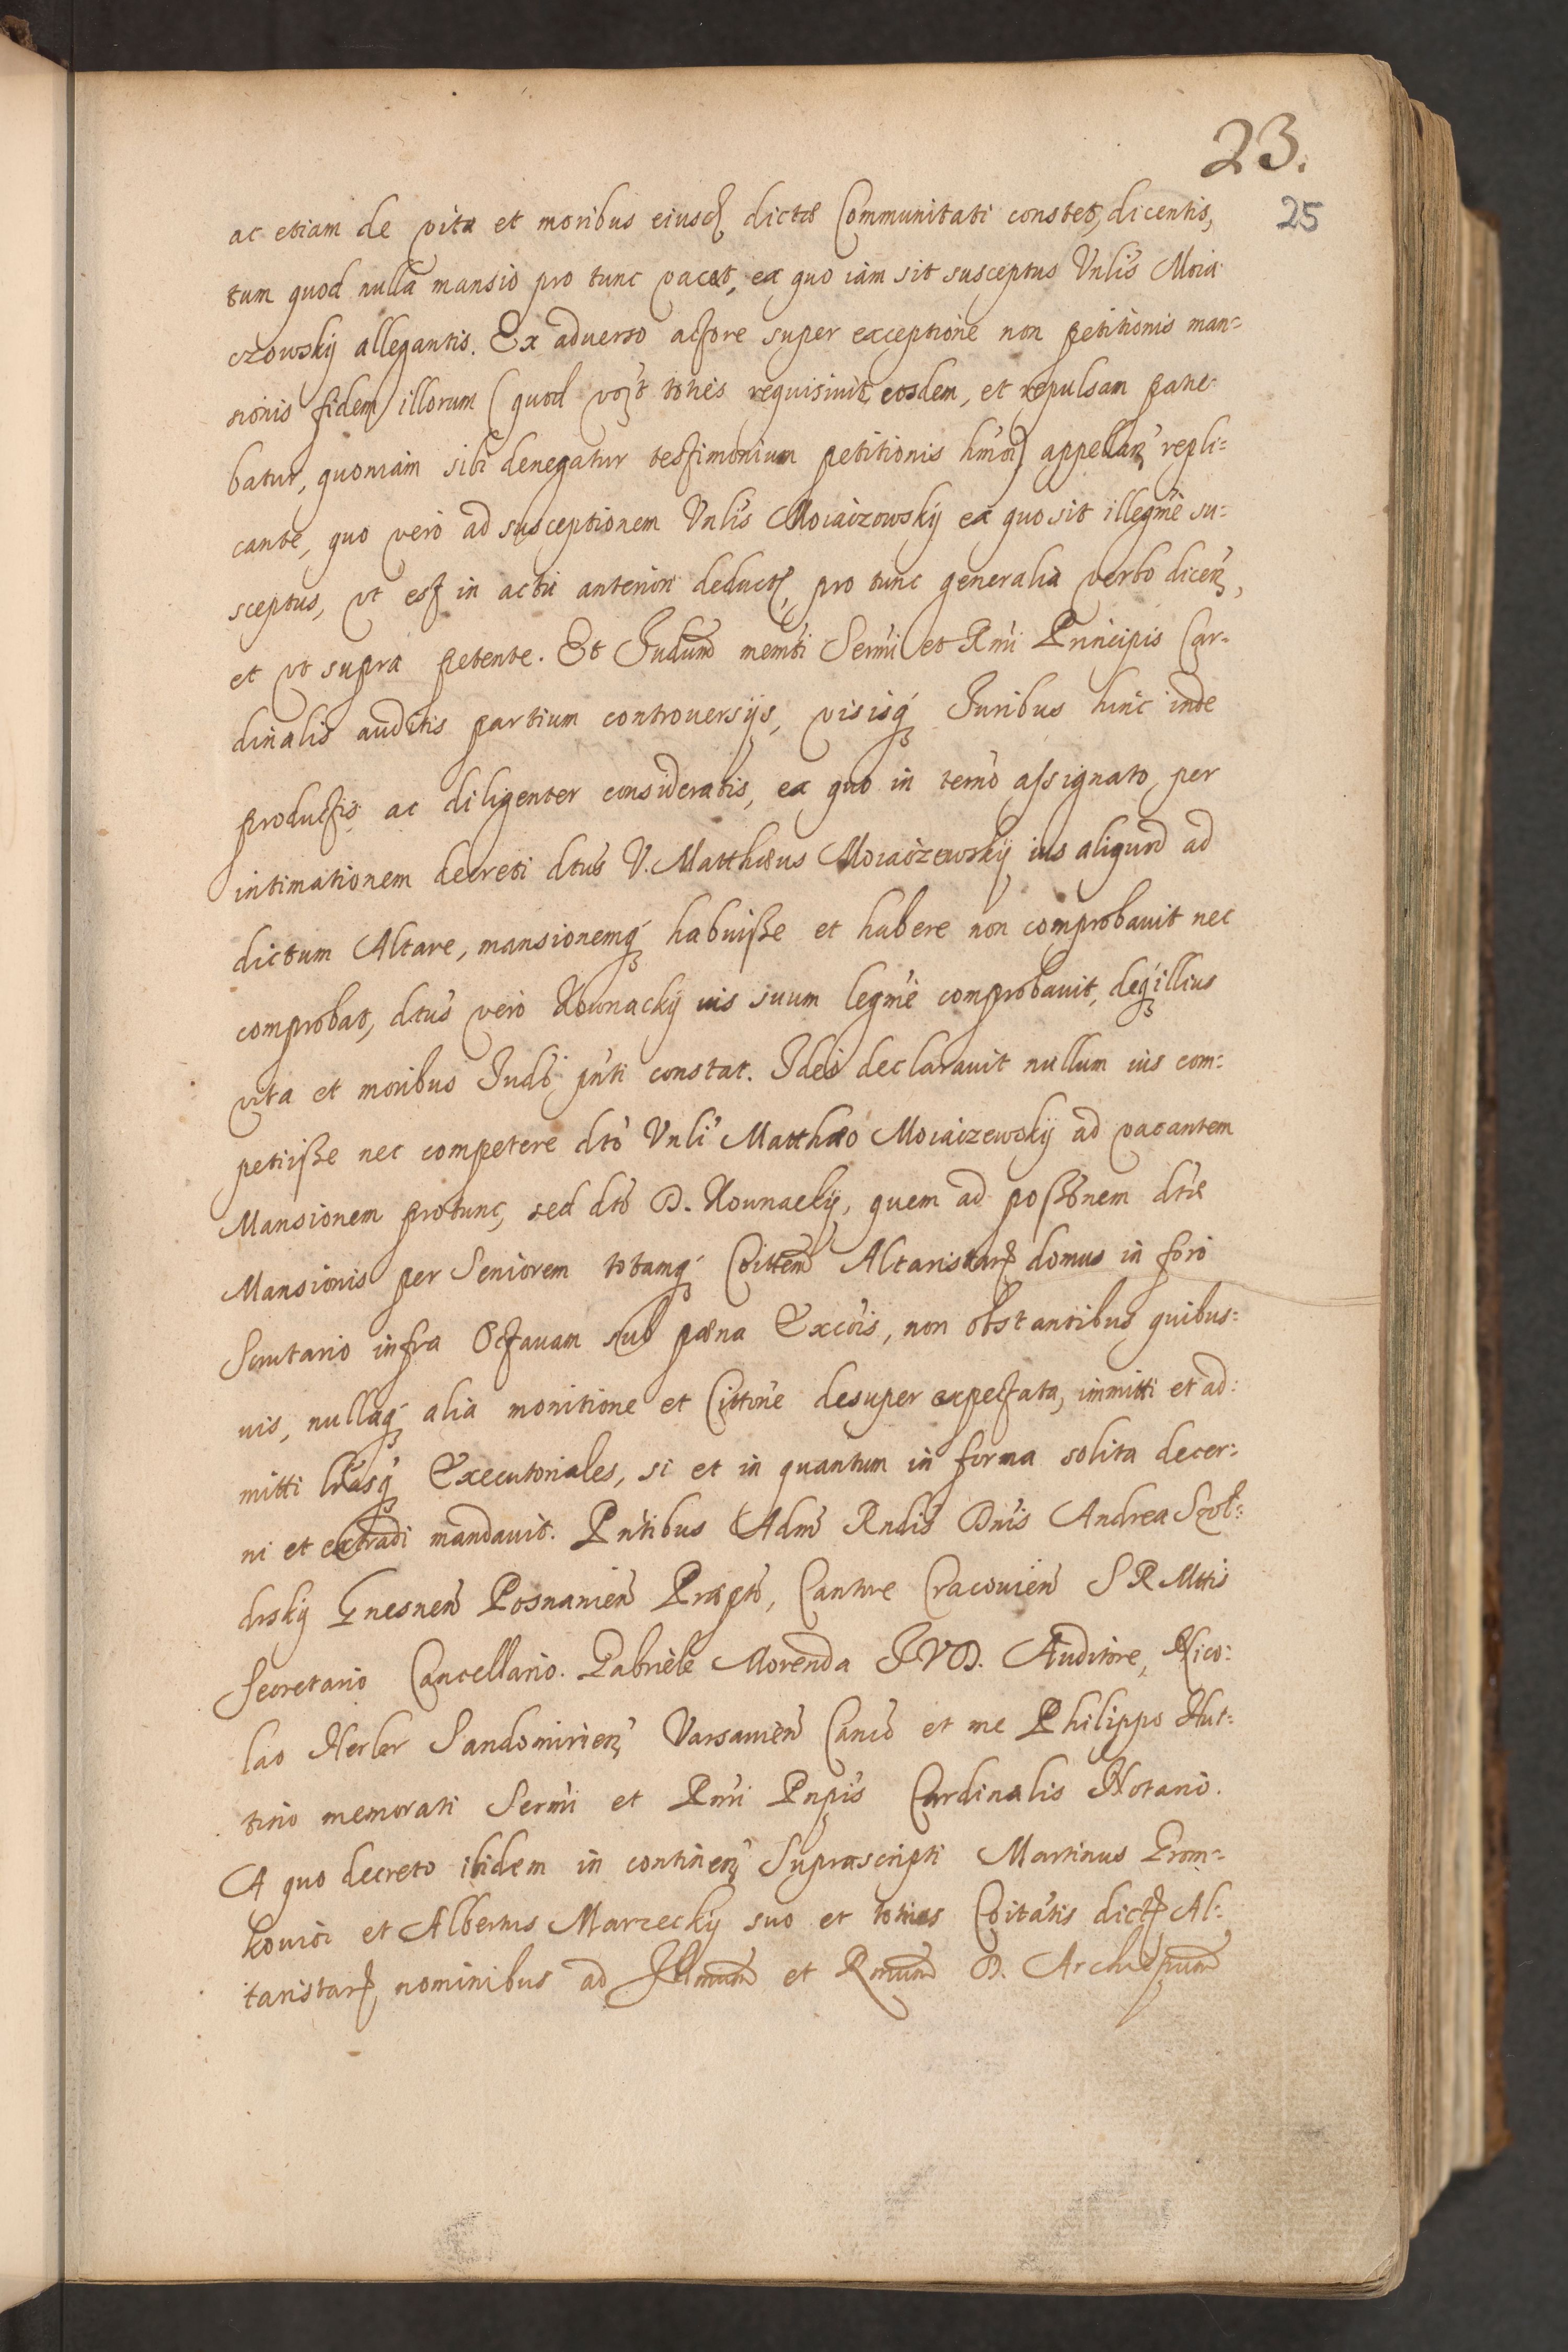 23.
25
ac etiam de vita et moribus eiusd dictæ Communitati constet, dicentis,
tum quod nulla mansio pro tunc vacet, ex quo iam sit susceptus Vnlis Moia
czowsky allegantis. Ex aduerso actore super exceptione non petitionis man-
sionis fidem illorum (quod toties requisiuit eosdem, et repulsam patie-
batur, quoniam sibi denegatur testimonium petitionis appellan repli-
cante, quo vero ad susceptionem Vnlis Moiaizowsky ex quo sit illegme su-
sceptus, vt est in actu anteriori deduct, pro tunc generalia verbo dicen,
et vt supra petente. Et Judum memti Sermi et Rmi Principis Car-
dinalis auditis partium controuersijs, visisq Juribus hinc inde
productis ac diligenter consideratis, ex quo in termo assignato per
intimationem decreti dtus V. Matthæus Moiaizewsky ius aliquod ad
dictum Altare, mansionemq habuisse et habere non comprobauit nec
comprobat, dtus vero Kownacky ius suum legme comprobauit, deq illius
vita et moribus Judo pnti constat. Ideo declarauit nullum ius com-
petijsse nec competere dto Vnli Matthæo Moiaizewsky ad vacantem
Mansionem protunc, sed dto D. Kownacky, quem ad possonem dtæ
Mansionis per Seniorem totamq Coittem Altaristar domus in foro
Scrutario infra Octauam sub pæna Excois, non obstantibus quibus-
uis, nullaq alia monitione et Cittone desuper expectata, immitti et ad-
mitti lrasq Executoriales, si et in quantum in forma solita decer-
ni et extradi mandauit. Pntibus Adm Rndis Dnis Andrea Szoł-
drsky Gnesnen Posnanien Præpto, Cantore Cracouien S R Mttis
Secretario Cancellario. Gabriele Morenda J V D. Auditore, Nico-
lao Herler Sandomirien Varsauien Canco et me Philippo Hut-
tino memorati Sermi et Rmi Pnpis Cardinalis Notario.
A quo decreto ibidem in continen Suprascripti Martinus Grom-
kouic et Albertus Marzecky suo et totius Coitatis dict Al-
taristar, nominibus ad Illmum et Rmum D. Archiepum